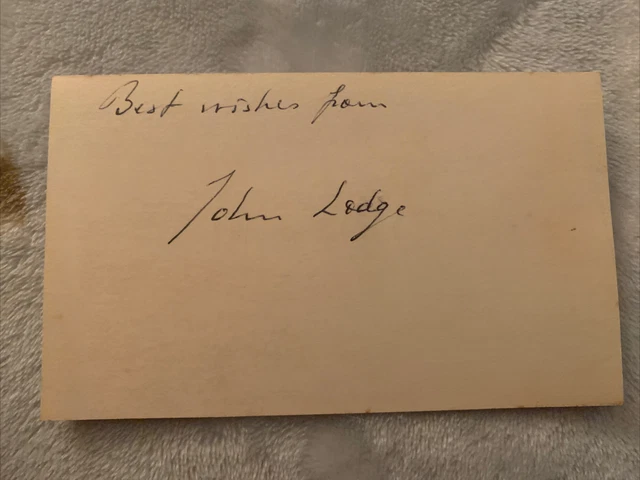 Best wishes from
John Lodge